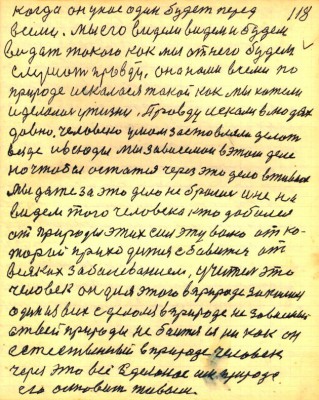 когда он уже один будет перед 118
всеми. мы его видели видем и будем
видат такого как мы от него будем
слушат правду, она нами всеми по
природе искалася такой как мы хотели
и делали у жизни, Правду искали в людях
давно. человека умом заставляли делат
везде и всюды мы зависемом в этом деле
но чтобы остатся через это дело в живых
мы даже за это дело не бралис и не на
видем того человека кто добился
от природы этих сил эту воко от ко
торай приходится сбавится от
всяких заболеваниеи, учител это
человек он для этого в природе законну
один из всех сделом в природе не зависемы
от всей природы не боится ни как он
естественный в природе человек
через это всё зделоное им природа
его оставит живым.